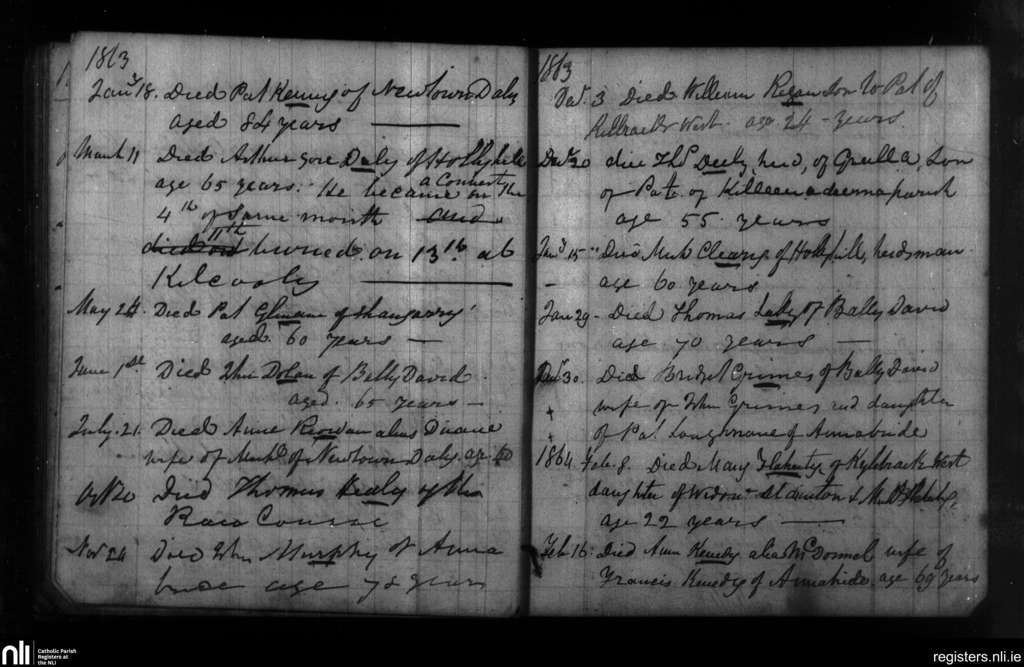 1863
Jany 18. Died Pat Kenny of Newtown Daly
aged 84 years
March 11 Died Arthur Gore Daly of Hollyhill
age 65 years. He became a Convert on the
4th of same month and
died and 11th buried on 13th at
Kilcooly
May 24. Died Pat of
aged 60 years
June 1st Died John Dolan of BallyDavid
aged 65 years
July 21. Died Anne alias Duane
wife of Michl of Newtown Daly age 60
Oct 20 Died Thomas Healy of the
Race Course
Nov 24 Died John Murphy of Anna
bride age years
1863
Dec. 3 Died William Regan son to Pat of
Killrack West. age 24 years.
Decr 20 died Thos Deely, herd, of Grulla, son
of Patk of Killeenadeema parish
age 55 years
Jany 15 Died Mick Cleary of Hollyhill, herdsman
age 60 years
Jan 29 Died Thomas Lally of Bally David
age 70 years
30. Died Bridget Grimes of Bally David
wife of John Grimes and daughter
of Pat of Annabride
1864 Feb. 8. Died Mary Flaherty of Kylebrack West
daughter of Widow Staunton &
age 22 years
Feb. 16. Died Ann Kenedy alias McDonnel wife of
Francis Kenedy of Annabride age 69 years
nli
Catholic Parish
Registers at
the NLI
registers.nli.ie